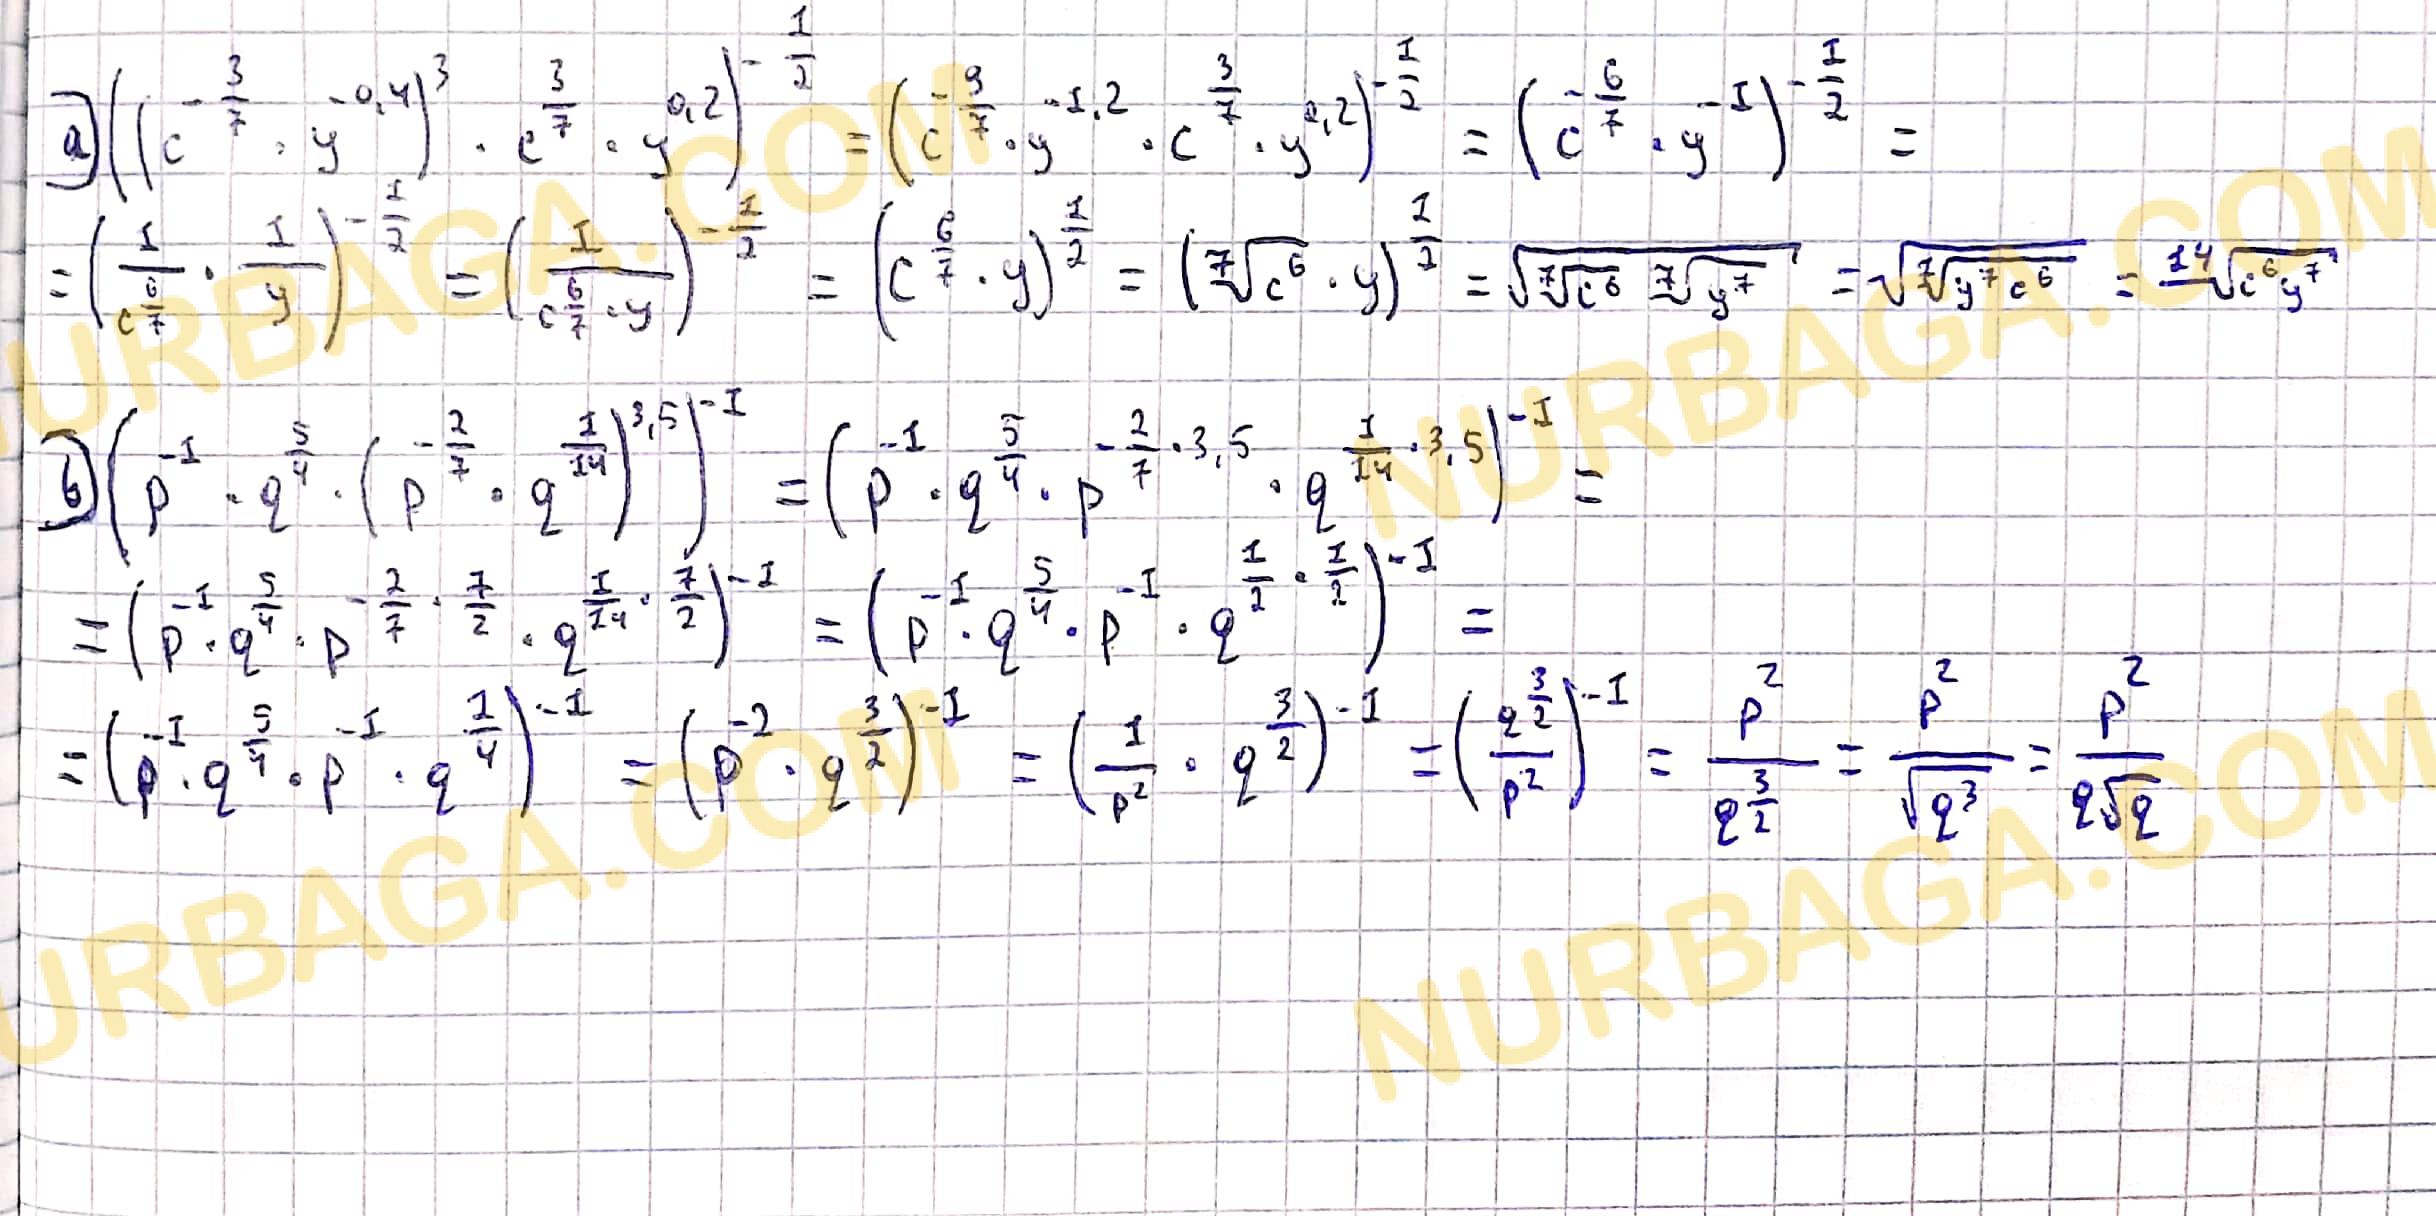 a) ((c^{-3/7} · y^{-0,4})^3 · c^{3/7} · y^{0,2})^{-1/2} = (c^{-9/7} · y^{-1,2} · c^{3/7} · y^{0,2})^{-1/2} = (c^{-6/7} · y^{-1})^{-1/2} =
= (1/c^{6/7} · 1/y)^{-1/2} = (1/(c^{6/7} · y))^{-1/2} = (c^{6/7} · y)^{1/2} = (⁷√(c^6) · y)^{1/2} = √(⁷√(c^6) ⁷√(y^7)) = √(⁷√(y^7 c^6)) = ¹⁴√(c^6 y^7)
b) (p^{-1} · q^{5/4} · (p^{-2/7} · q^{1/14})^{3,5})^{-1} = (p^{-1} · q^{5/4} · p^{-2/7 · 3,5} · q^{1/14 · 3,5})^{-1} =
= (p^{-1} · q^{5/4} · p^{-2/7 · 7/2} · q^{1/14 · 7/2})^{-1} = (p^{-1} · q^{5/4} · p^{-1} · q^{1/2 · 1/2})^{-1} =
= (p^{-1} · q^{5/4} · p^{-1} · q^{1/4})^{-1} = (p^{-2} · q^{3/2})^{-1} = (1/p^2 · q^{3/2})^{-1} = (q^{3/2}/p^2)^{-1} = p^2/q^{3/2} = p^2/√(q^3) = p^2/(q√q)
NURBAGA.COM
NURBAGA.COM
NURBAGA.COM
NURBAGA.COM